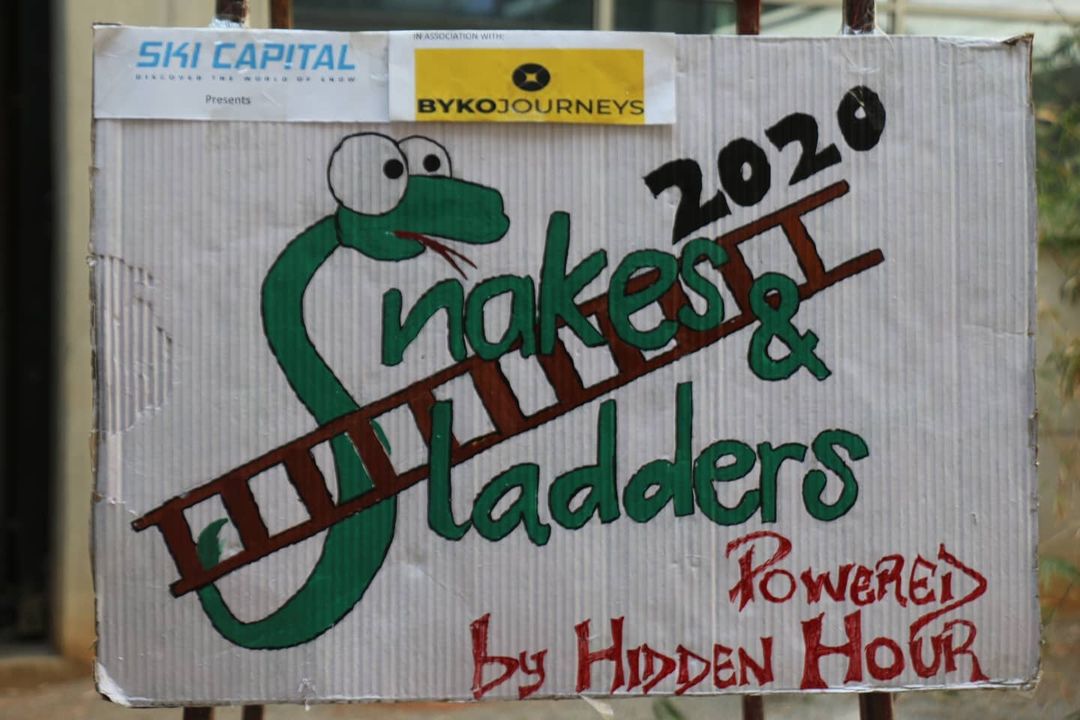 SKI CAP!TAL
DISCOVER THE WORLD OF SNOW
Presents
IN ASSOCIATION WITH:
BYKOJOURNEYS
2020
Snakes &
Ladders
POWERED
by HIDDEN HOUR